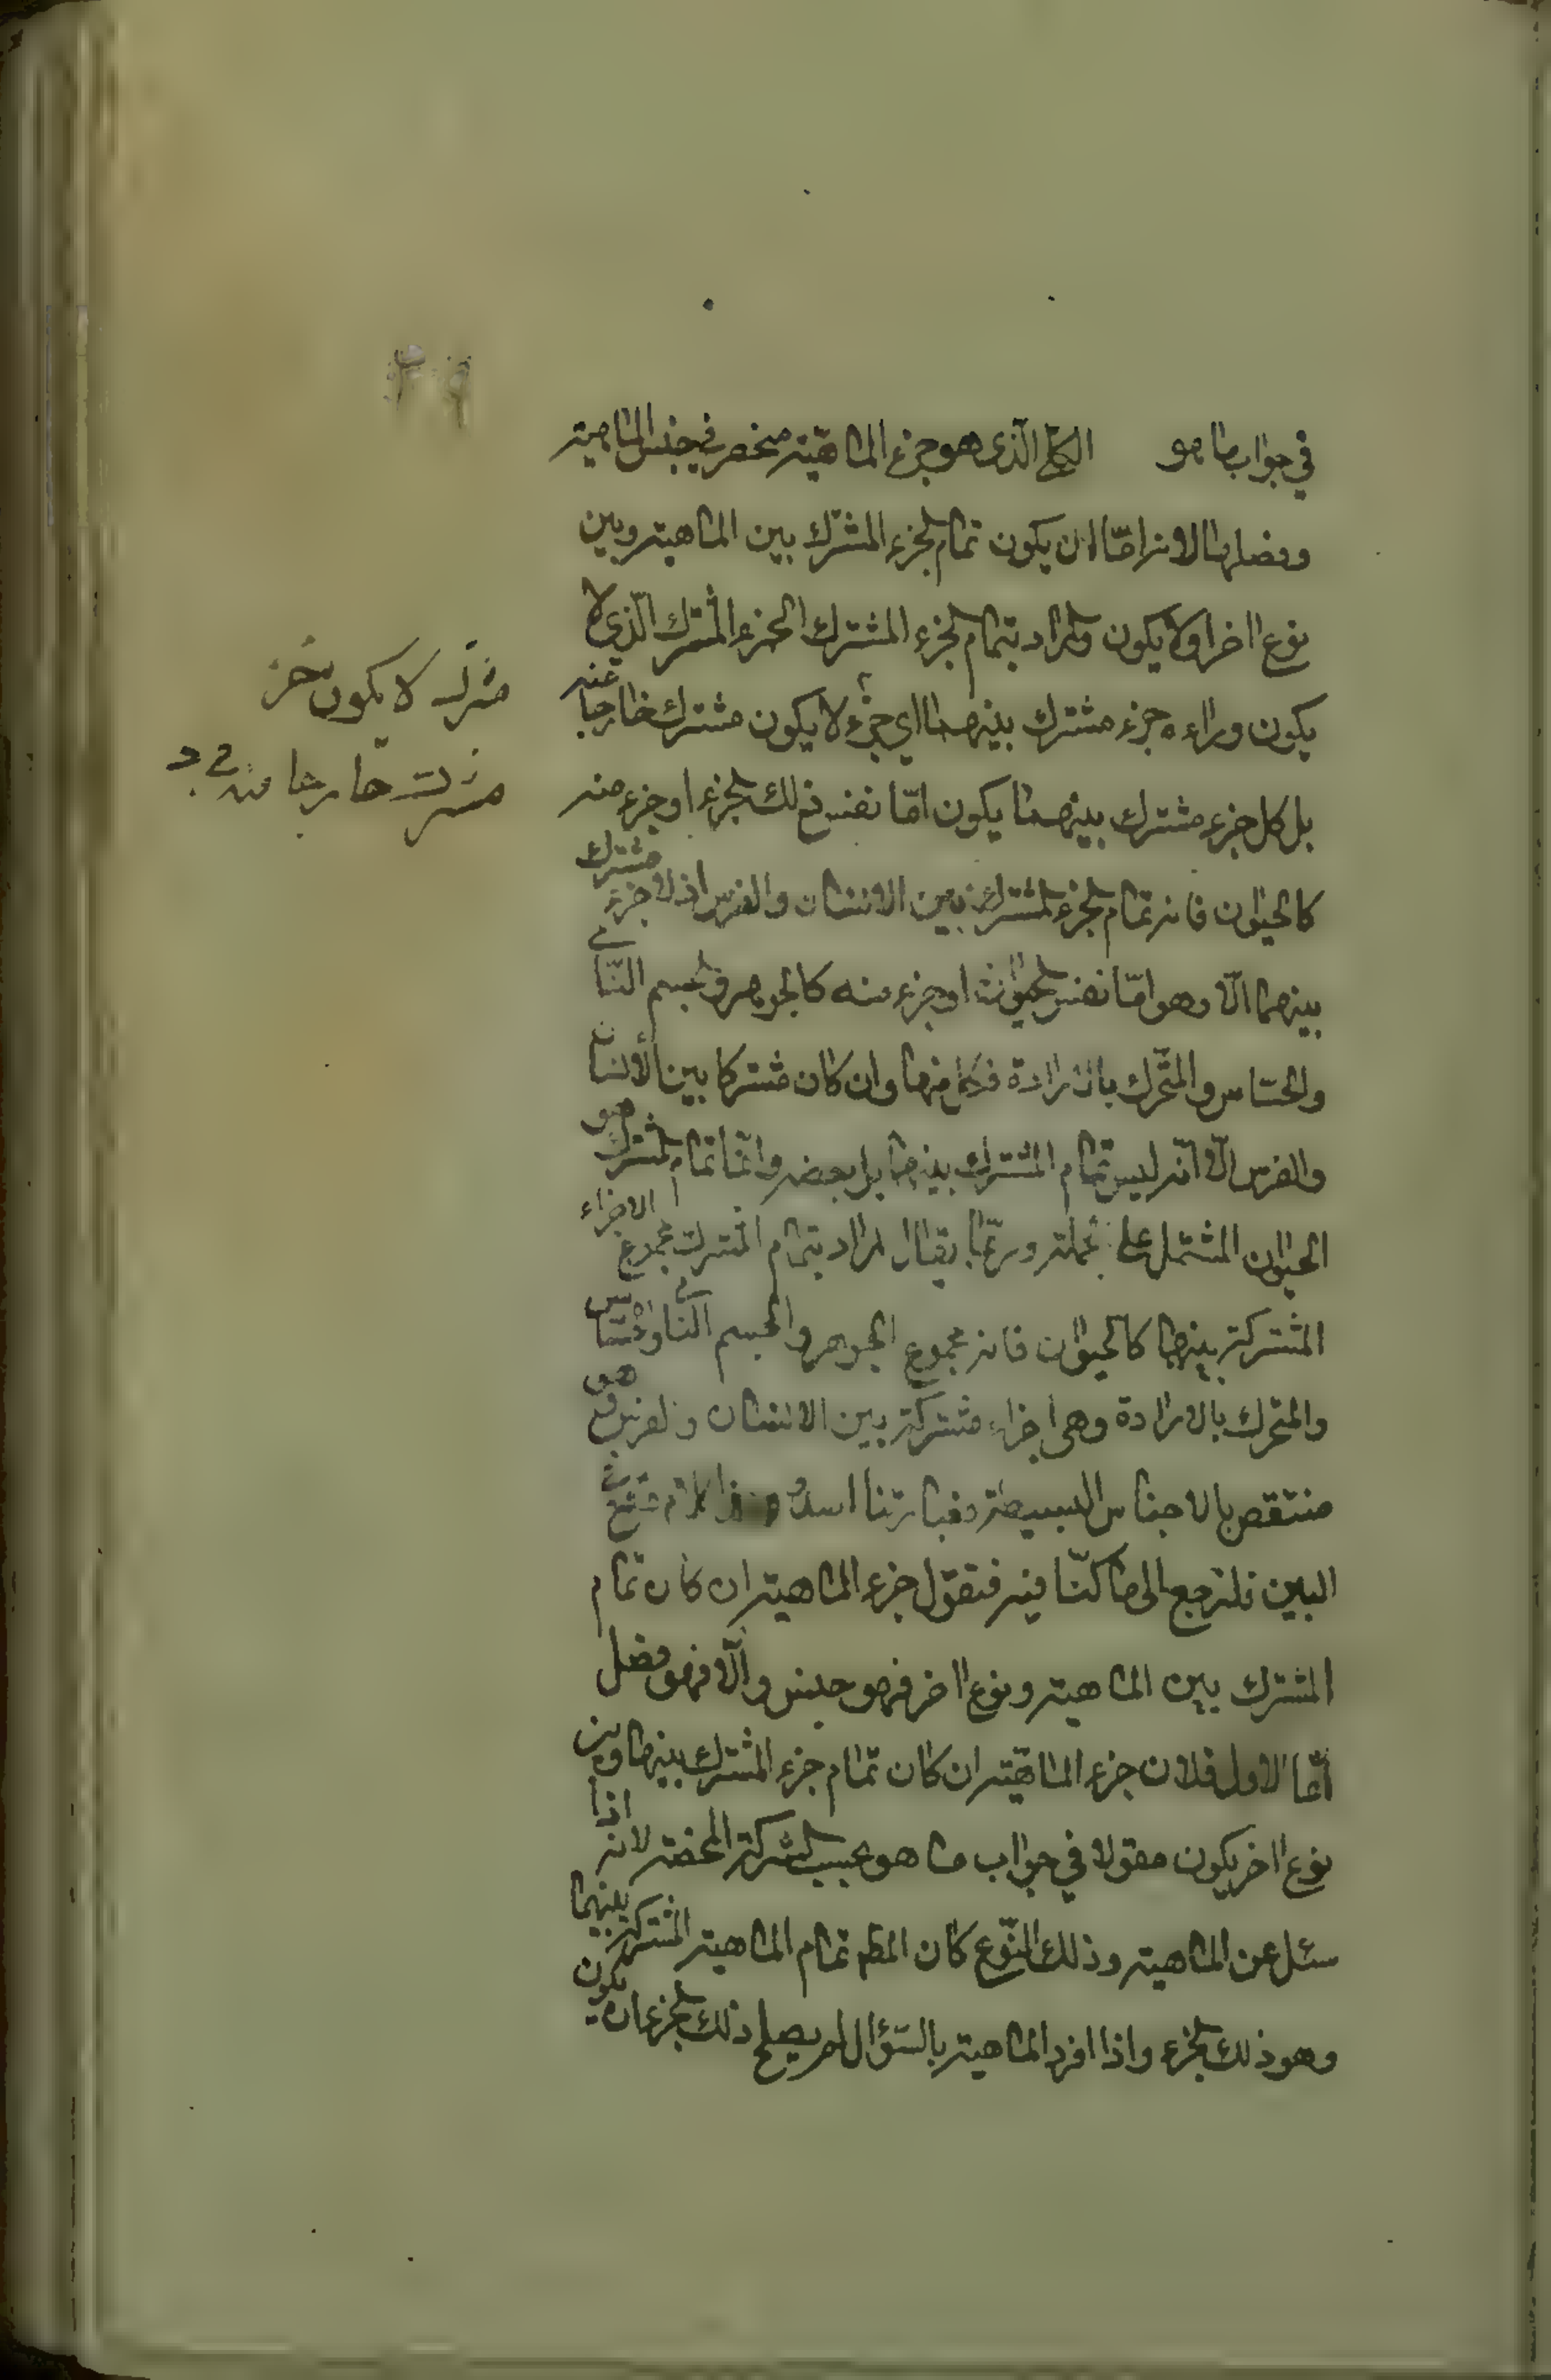 في جواب ما هو الكلي الذى هو جزء الماهية منحصر في جنس الماهية
وفصلها لانه امّا ان يكون تمام الجزء المشترك بين الماهية وبين
نوع اخر او لا يكون والمراد بتمام الجزء المشترك الجزء المشترك الّذي لا
يكون وراءه جزء مشترك بينهما اي جزء لا يكون مشترك خارجا عنه
بل كل جزء مشترك بينهما يكون امّا نفس ذلك الجزء او جزء منه
كالحيوان فانه تمام الجزء المشترك بين الانسان والفرس اذ لا جزء مشترك
بينهما الّا وهو امّا نفس الحيوان او جزء منه كالجوهر والجسم النّامي
والحسّاس والمتحرّك بالارادة فكل منها وان كان مشتركا بين الأنسان
والفرس الّا انّه ليس تمام المشترك بينهما بل بعضه وانّما تمام المشترك هو
الحيوان المشتمل على جملته وربّما يقال المراد بتمام المشترك مجموع الاجزاء
المشتركة بينهما كالحيوان فانه مجموع الجوهر والجسم النّامى والحسّاس
والمتحرك بالارادة وهى اجزاء مشتركة بين الانسان والفرس وهو
منتقض بالاجناس البسيطة فعبارتنا اسدّ وهذا الكلام وقع في
البين فلنرجع الى ما كنّا فيه فنقول جزء الماهية ان كان تمام
المشترك بين الماهية ونوع اخر فهو جنس والّا فهو فصل
امّا الاول فلان جزء الماهيّة ان كان تمام جزء المشترك بينها وبين
نوع اخر يكون مقولا في جواب ما هو بحسب الشركة المحضة لانه اذا
سئل عن الماهية وذلك النّوع كان المط تمام الماهية المشتركة بينهما
وهو ذلك الجزء واذا افرد الماهية بالسّؤال لم يصلح ذلك الجزء ان يكون
مشترك لا يكون جزء
مشترك خارجا منه